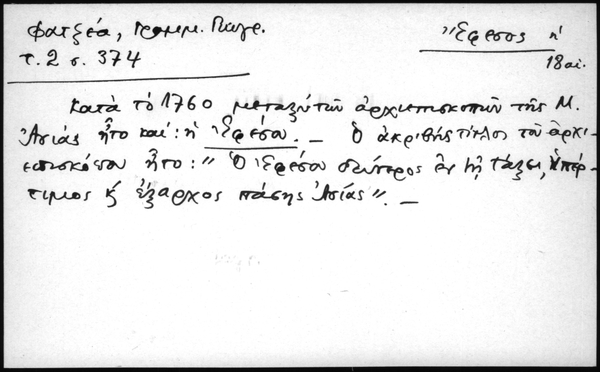 Φατζέα, Γραμμ. Γεωγρ.
τ. 2 σ. 374
Ἔφεσος ἡ
18 αἰ.
Κατὰ τὸ 1760 μεταξὺ τῶν ἀρχιεπισκοπῶν τῆς Μ.
Ἀσίας ἦτο καὶ: ἡ Ἐφέσου. — Ὁ ἀκριβὴς τίτλος τοῦ ἀρχι-
επισκόπου ἦτο: "Ὁ Ἐφέσου δεύτερος ἐν τῇ τάξει, ὑπέρ-
τιμος κ̀ ἔξαρχος πάσης Ἀσίας". —